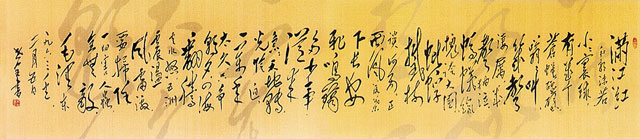 满江红
和郭沫若
小小寰球
有几个
苍蝇碰壁
嗡嗡叫
几声
凄厉几
声抽泣
蚂蚁缘
槐夸大国
蚍蜉
撼树
谈何易正
西风落叶
下长安
飞鸣镝
多少事
从来急
天地转
光阴迫
一万年太
久只争
朝夕四海
翻腾
云水怒五洲
震荡
风雷激
要扫除
一切害人虫
全无敌
毛泽东
一九六三年
二月五日